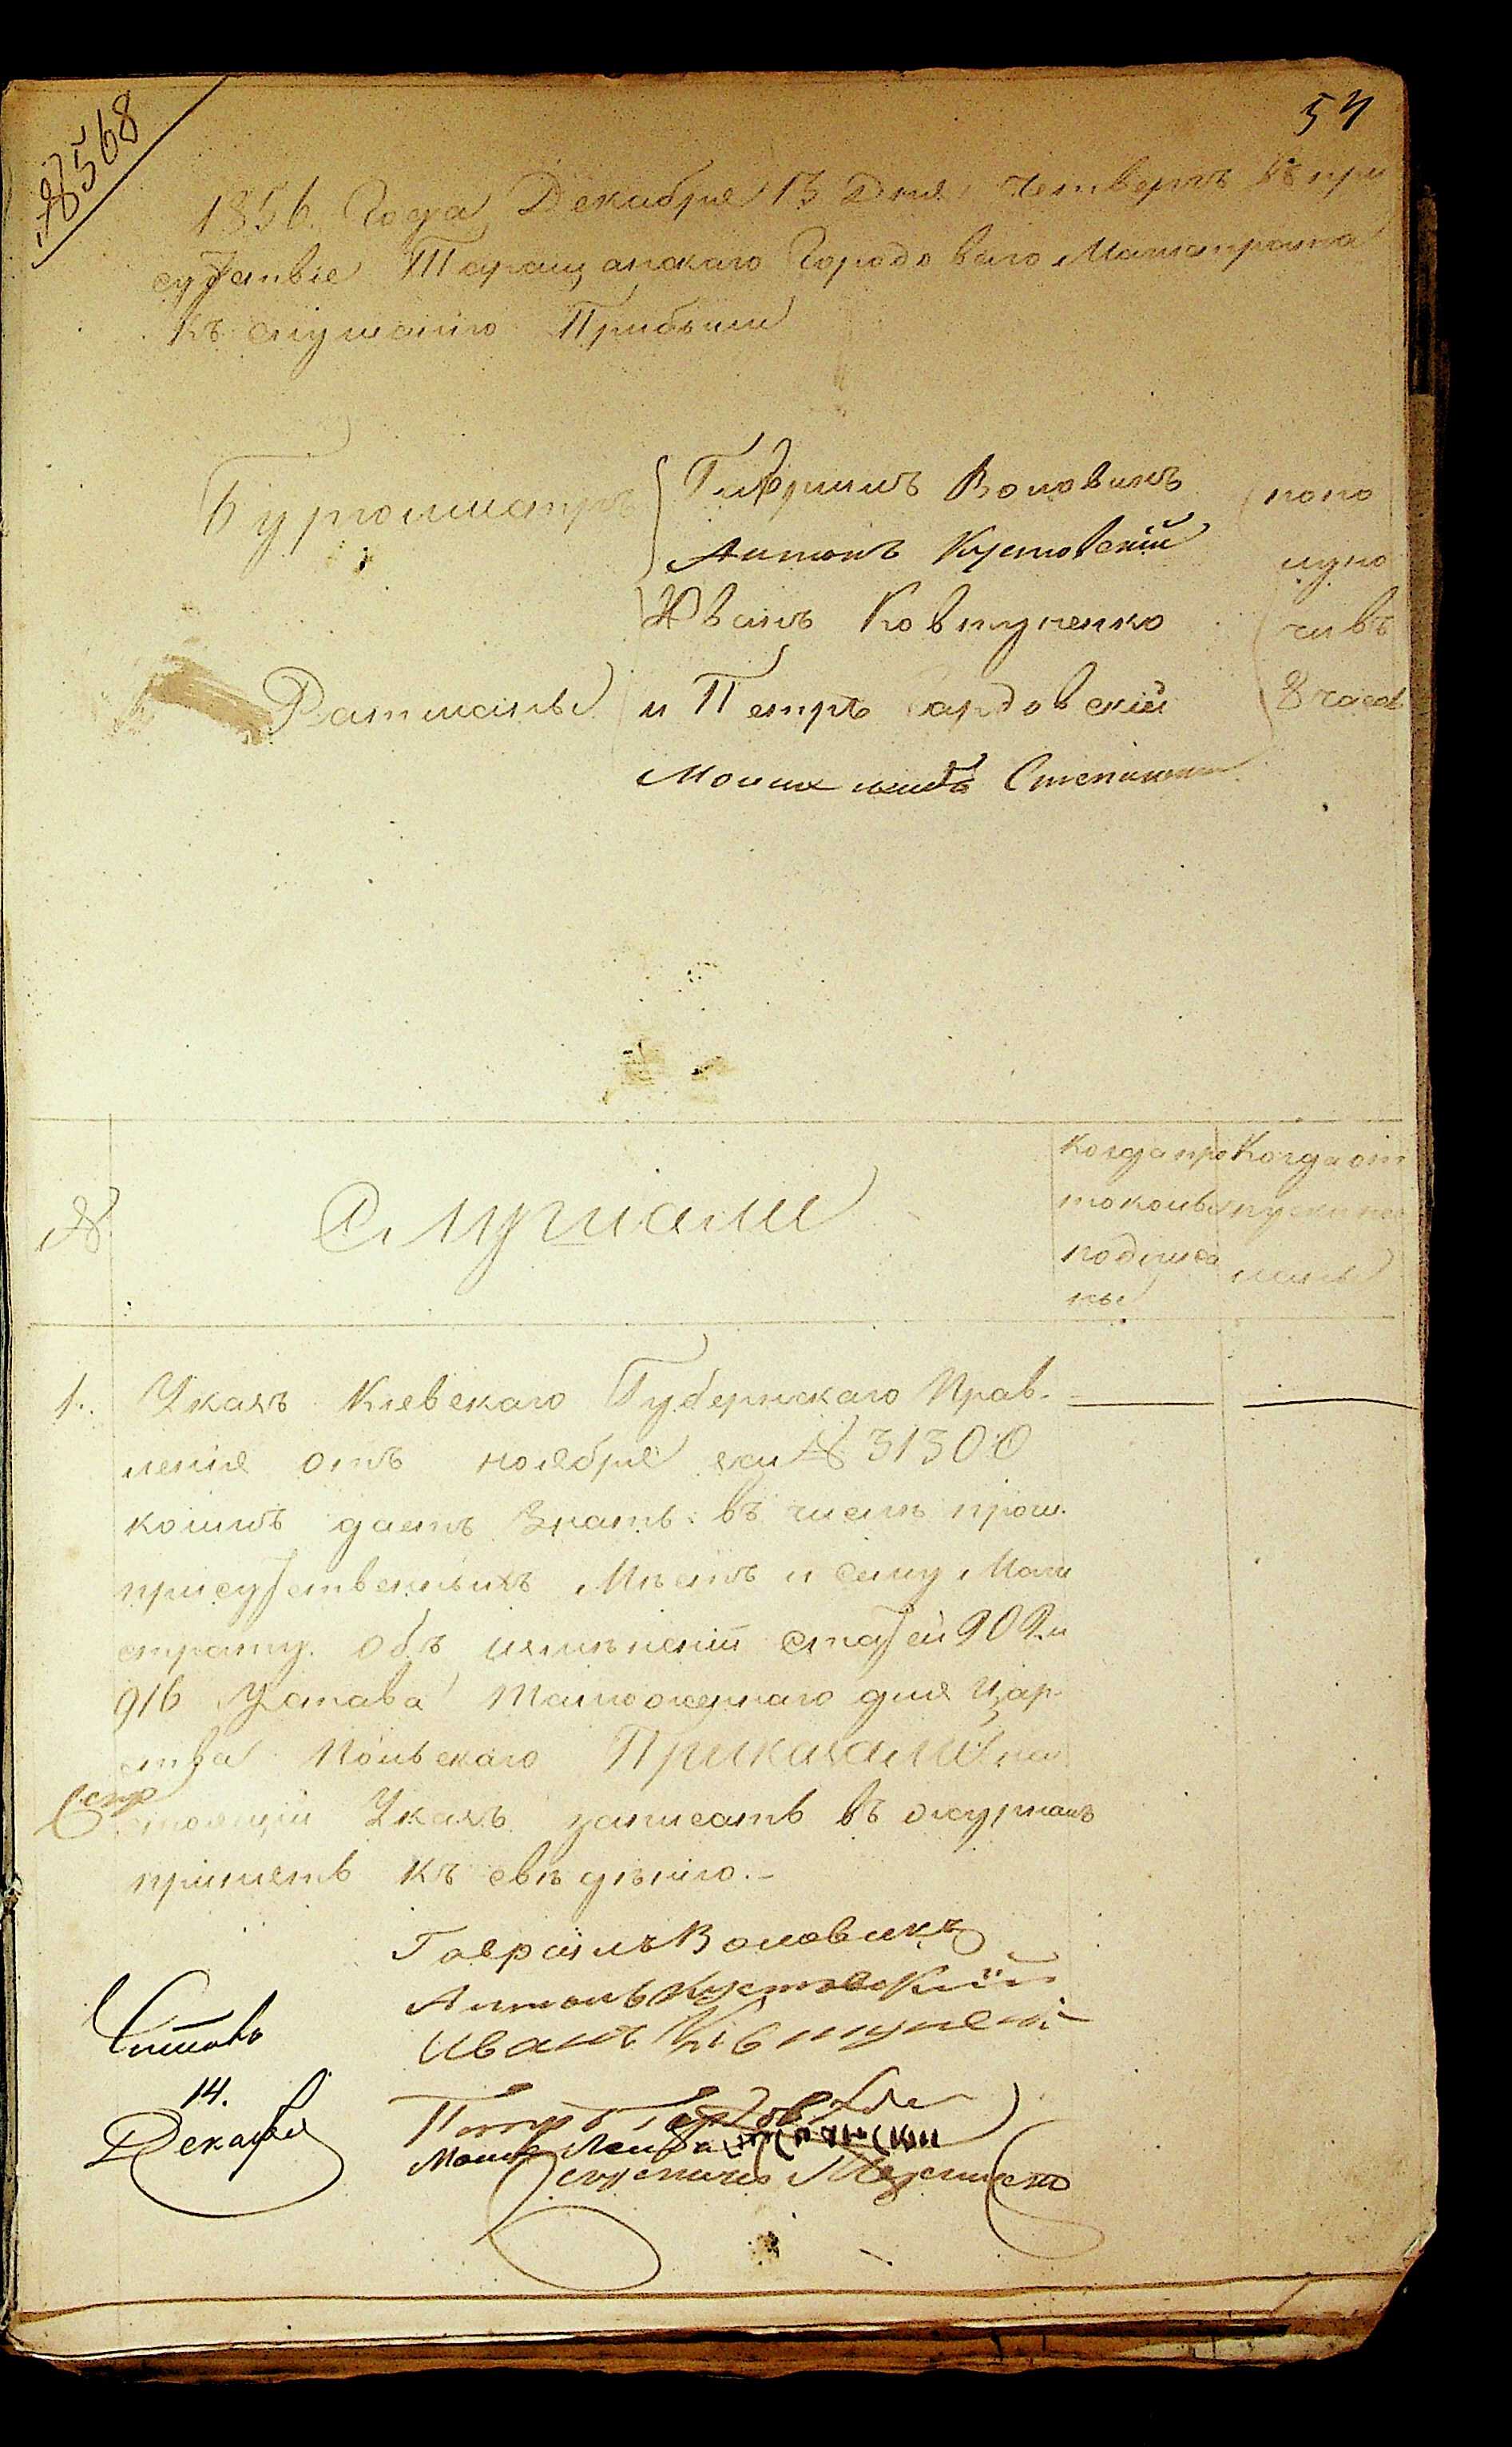 № 8568
54
1856. Года Декабря 13 Дня, Четвергъ Въ при
сутствіе Таращанскаго Городоваго Магистрата
Къ слушанію Прибыли
Бургомистръ
Гавріилъ Воловикъ
Антонъ Кустовскій
Иванъ Ковтуненко
Ратманы
и Петръ Гардовскій
Мошко
попо
луно
чи въ
8 часа
№
Слушали
Когда про
токолы
подписа
ны
Когда от
пускные
1. Указъ Кіевскаго Губернскаго Прав-
ленія отъ ноября за № 31300
коимъ даетъ Знать въ числѣ проч.
присутственныхъ Мѣстъ и сему Маги
страту. объ измѣненіи статей 909 и
916 Устава Таможеннаго для Цар-
ства Польскаго Приказали: на
стоящій Указъ записать въ журналъ
принять къ свѣденію.-
Гавріилъ Воловикъ
Антонъ Кустовскій
Иванъ Ковтуненко
Петръ Гардовскій
14.
Декабря